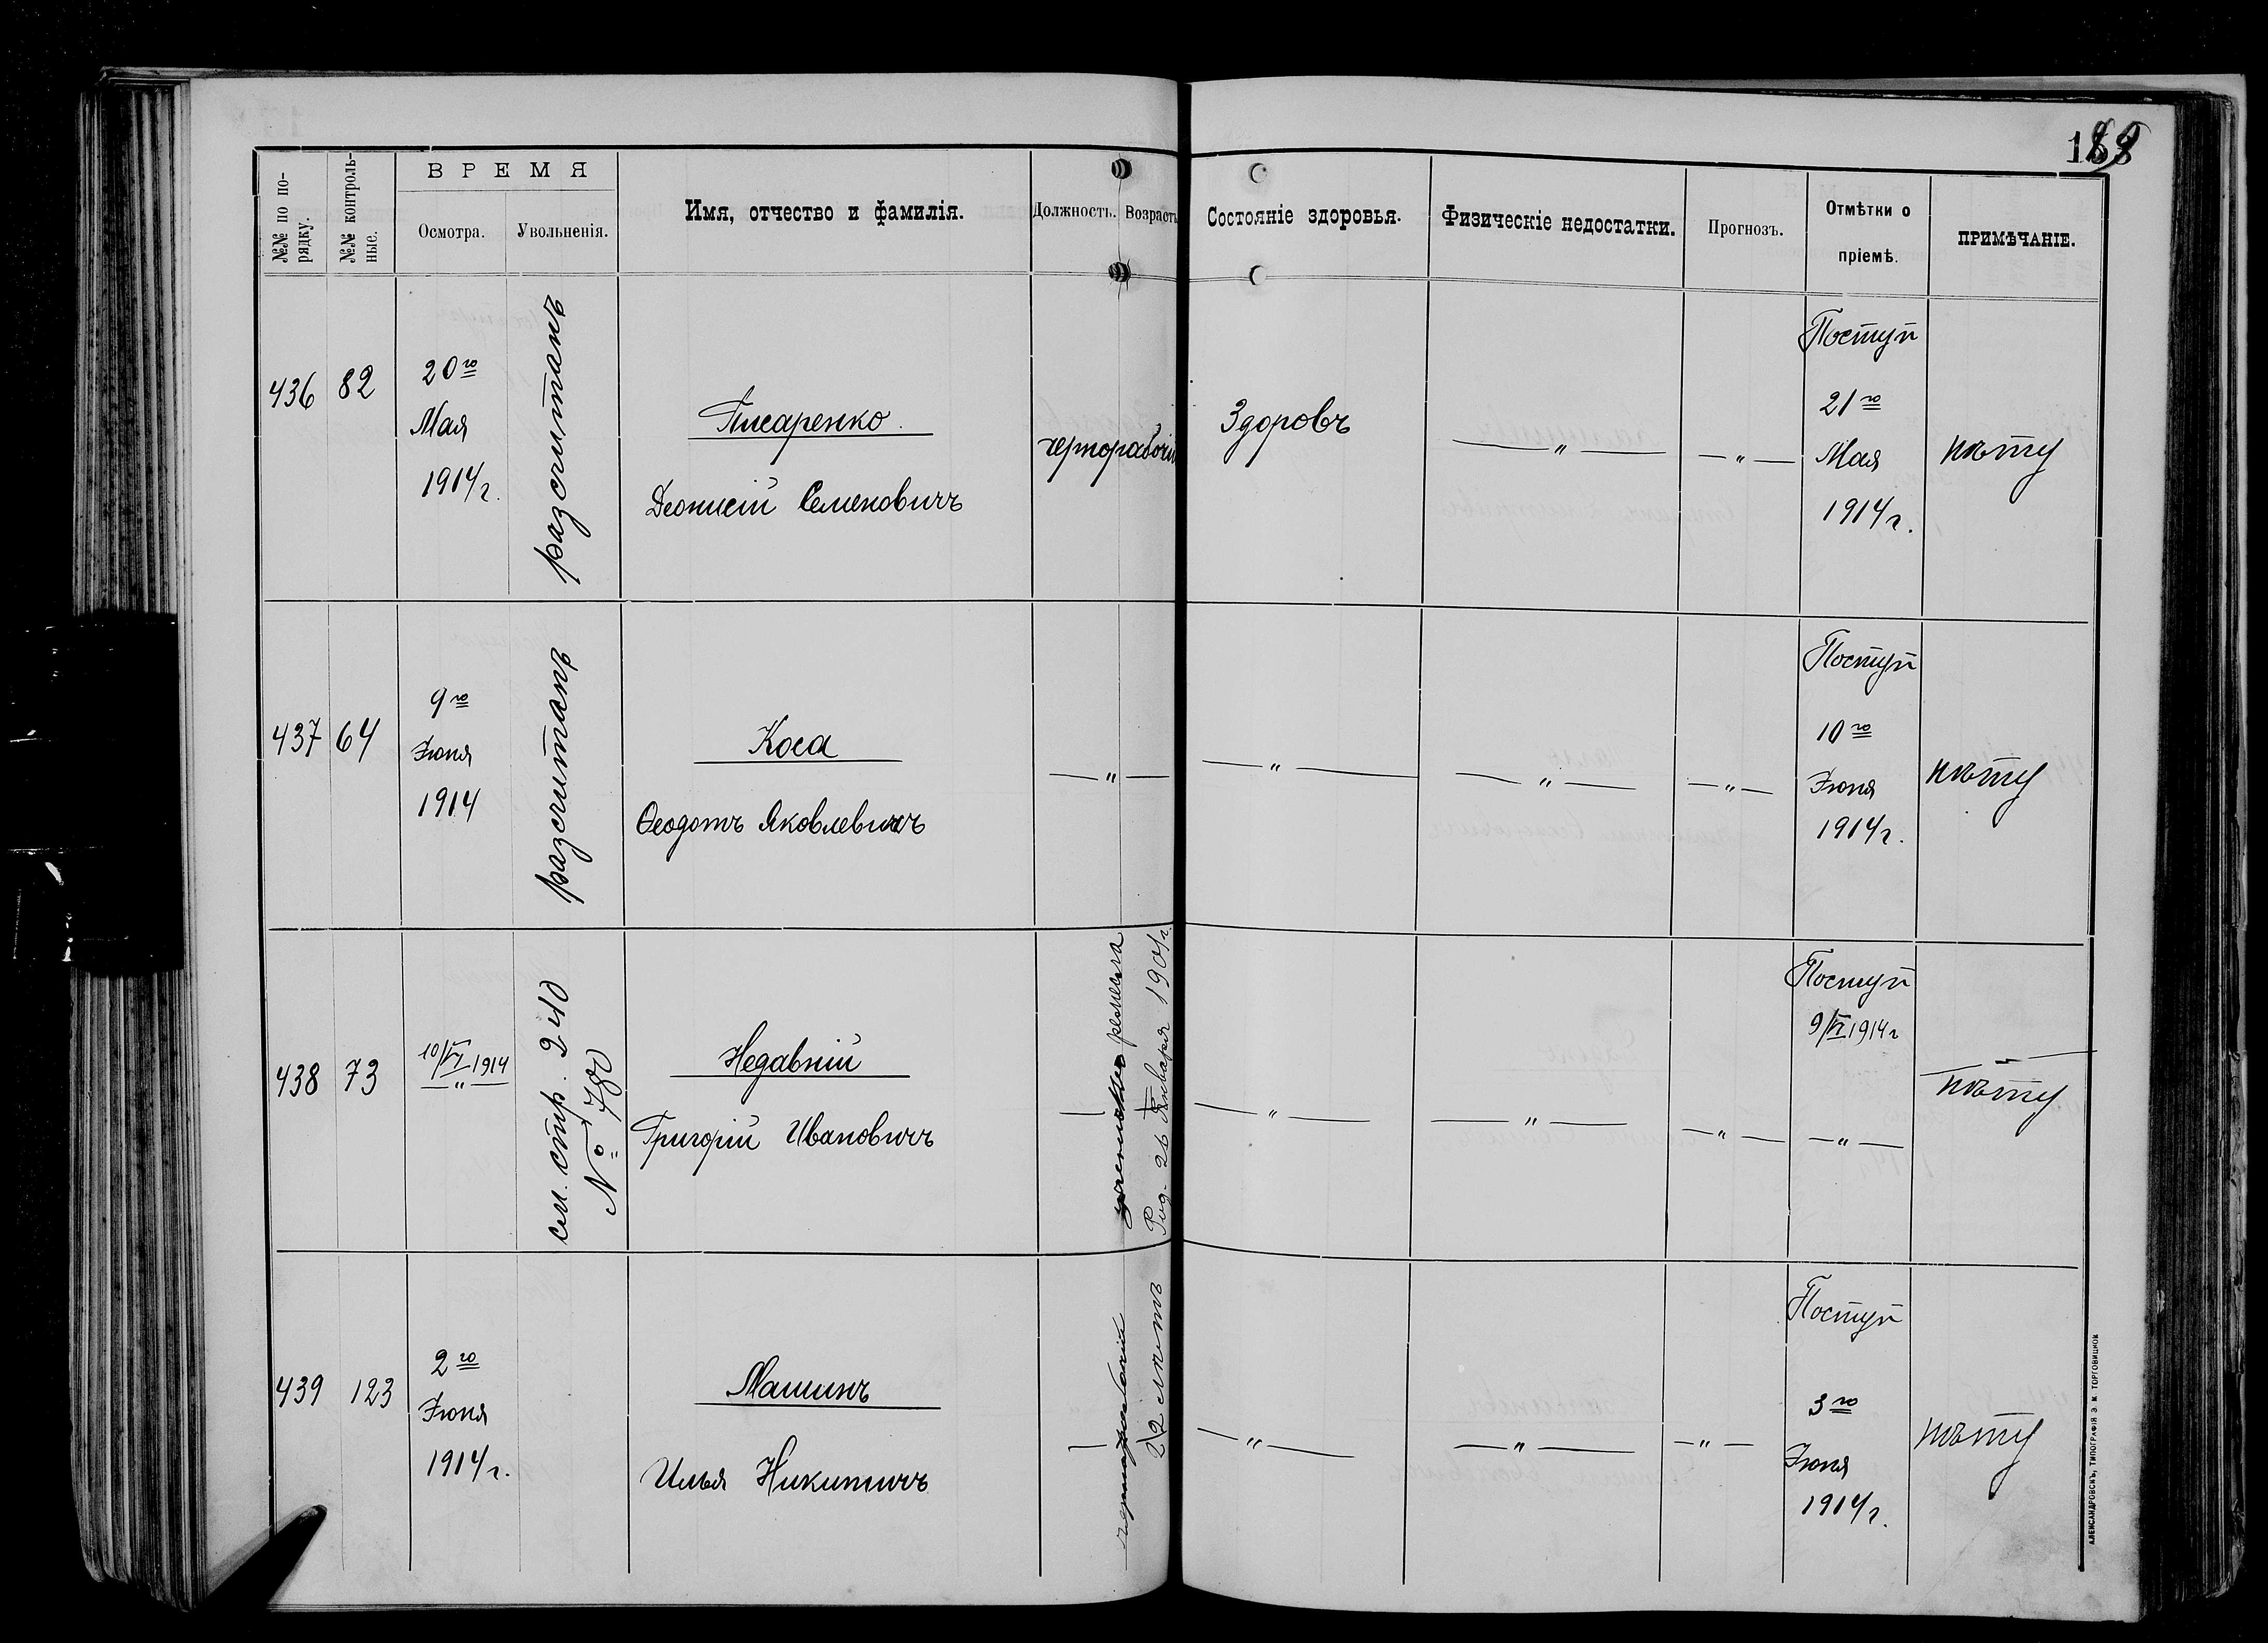 189
№№ по по-
рядку.
№№ контроль-
ные.
ВРЕМЯ
Осмотра.
Увольненія.
Имя, отчество и фамилія.
Должность.
Возрастъ
Состояніе здоровья.
Физическіе недостатки.
Прогнозъ.
Отмѣтки о
пріемѣ.
ПРИМѢЧАНІЕ.
436
82
20го
Мая
1914 г.
разсчитанъ
Писаренко
Деонисій Семеновичъ
чернорабочій
Здоровъ
— " —
— " —
Поступ
21го
Мая
1914 г.
нѣту
437
64
9го
Іюня
1914
разсчитанъ
Коса
Ѳеодотъ Яковлевичъ
— " —
— " —
— " —
— " —
Поступ
10го
Іюня
1914 г.
нѣту
438
73
10/VI 1914
— " —
см. стр. 240
№ 780
Недавній
Григорій Ивановичъ
ремесла
Род. 26 Января 1901 г.
— " —
— " —
— " —
Поступ
9/VI 1914 г
— " —
нѣту
439
123
2го
Іюня
1914 г.
Машинъ
Илья Никитичъ
чернорабочій
22 лѣтъ
— " —
— " —
— " —
Поступ
3го
Іюня
1914 г.
нѣту
АЛЕКСАНДРОВСКЪ, ТИПОГРАФІЯ Э. И. ТОРГОВИЦКОЙ